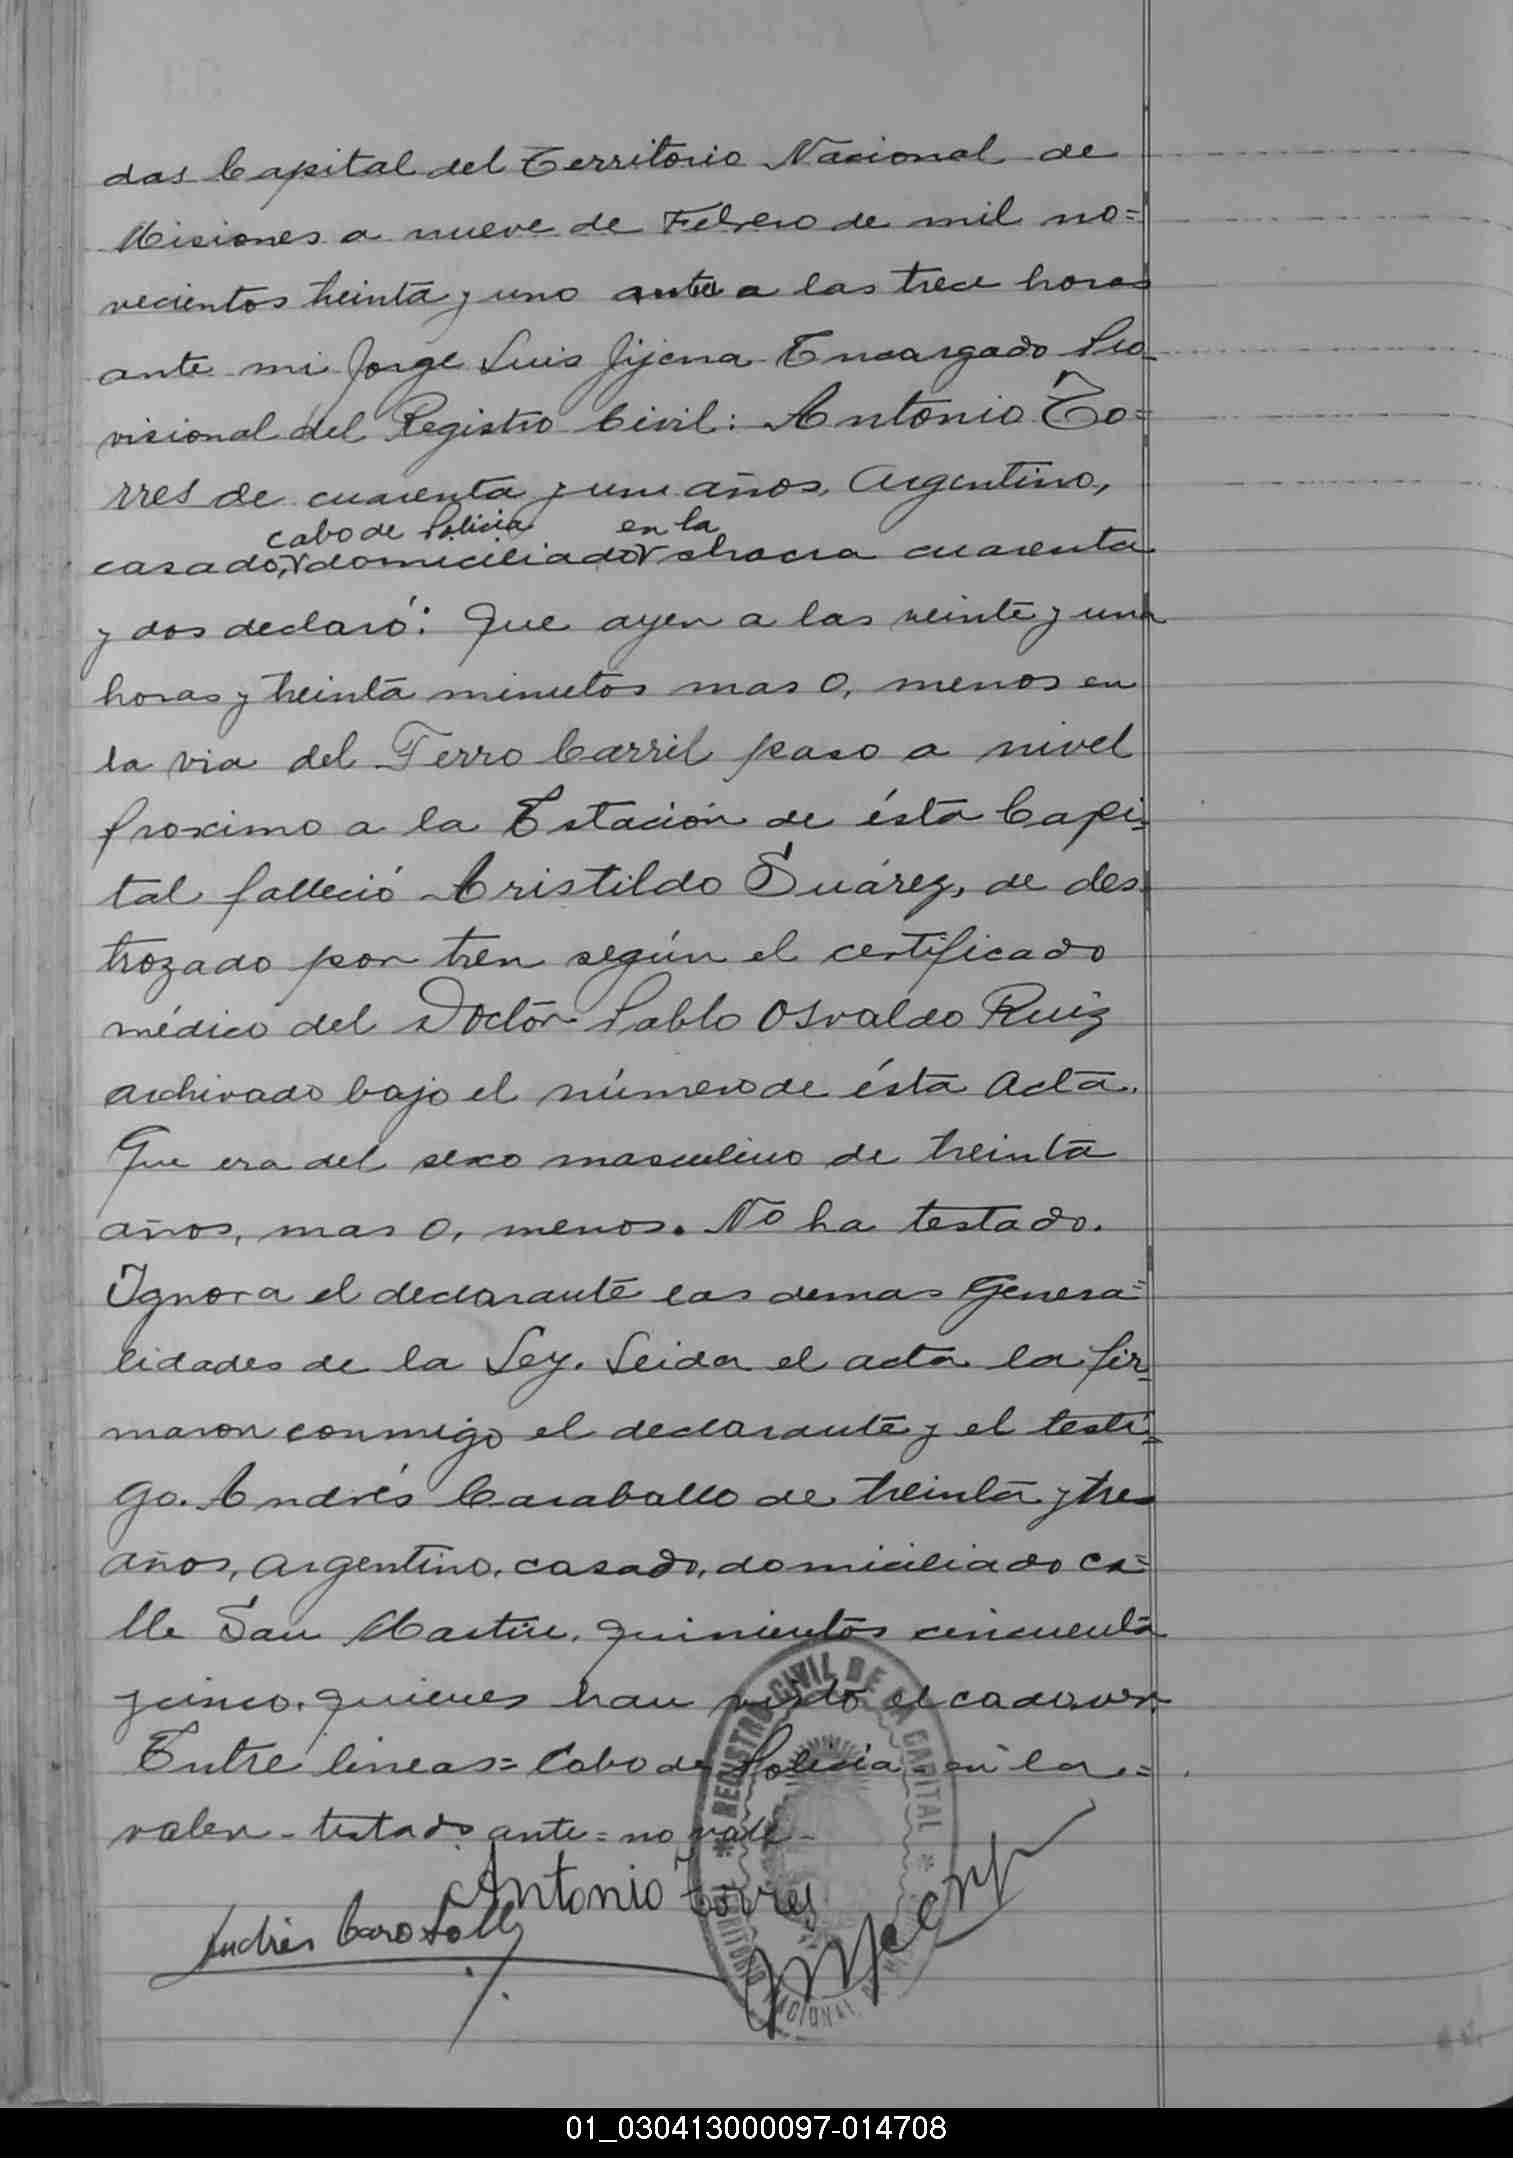 das Capital del Territorio Nacional de
Misiones a nueve de Febrero de mil no=
vecientos treinta y uno ante a las trece horas
ante mi Jorge Luis Jijena Encargado Pro
visional del Registro Civil: Antonio To=
rres de cuarenta y un años, Argentino,
cabo de Policia en la
casado, domiciliado chacra cuarenta
y dos declaró: Que ayer a las veinte y una
horas y treinta minutos mas o, menos en
la via del Ferro Carril paso a nivel
proximo a la Estación de ésta Capi=
tal falleció Aristildo Suárez, de des
trozado por tren según el certificado
médico del Doctor Pablo Osvaldo Ruiz
archivado bajo el número de ésta acta.
Que era del sexo masculino de treinta
años, mas o, menos. No ha testado.
Ignora el declarante las demas Genera=
lidades de la Ley. Leida el acta la fir=
maron conmigo el declarante y el testi=
go. Andrés Caraballo de treinta y tres
años, argentino, casado, domiciliado ca=
lle San Martin, quinientos cincuenta
y cinco, quienes han visto el cadaver.
Entre lineas= Cabo de Policia, en la.=
valen - testado ante = no vale -
Antonio Torres
Andrés Caraballo
REGISTRO CIVIL DE LA CAPITAL
TERRITORIO NACIONAL DE
01_030413000097-014708